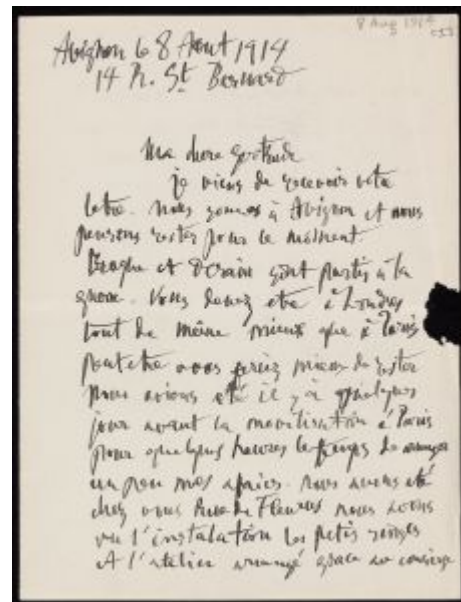 8 Aug 1914
Avignon le 8 Aout 1914
14 R. St Bernard
Ma chere Gertrude
je viens de recevoir votre
letre. nous somes à Avignon et nous
pensons rester pour le moment
Braque et Derain sont partis à la
guerre. Vous devez etre à Londres
tout de même mieux que à Paris
peutetre vous feriez mieux de rester
nous avions eté il y à quelques
jour avant la movilisation à Paris
pour quelques heures le temps de arranger
un peu mes afaires. nous avons eté
chez vous Rue de Fleurus nous avons
vu l'instalation les petis singes
et l'atelier arrangé grace au concierge